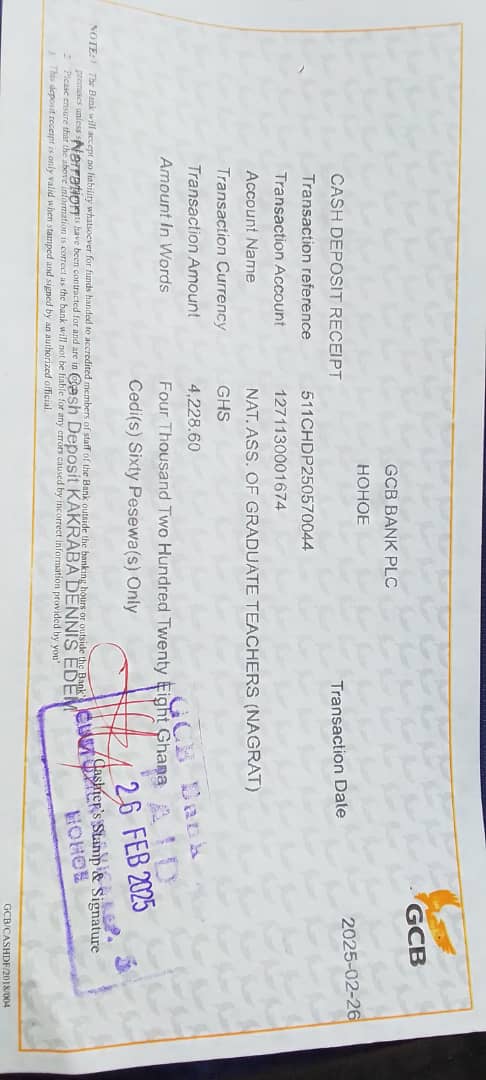 GCB
GCB BANK PLC
HOHOE
CASH DEPOSIT RECEIPT Transaction Date 2025-02-26
Transaction reference 511CHDP250570044
Transaction Account 1271130001674
Account Name NAT. ASS. OF GRADUATE TEACHERS (NAGRAT)
Transaction Currency GHS
Transaction Amount 4,228.60
Amount In Words Four Thousand Two Hundred Twenty Eight Ghana
Cedi(s) Sixty Pesewa(s) Only
GCB Bank
PAID
26 FEB 2025
HOHOE
Cashier's Stamp & Signature
Narration Cash Deposit KAKRABA DENNIS EDEM
NOTE: 1 The Bank will accept no liability whatsoever for funds handed to accredited members of staff of the Bank outside the banking hours or outside the Bank'
premises unless have been contracted for and are in
2 'Please ensure that the above information is correct as the bank will not be liable for any errors caused by incorrect information provided by you'
3 This deposit receipt is only valid when stamped and signed by an authorized official.
GCB/CASHDF/2018/004